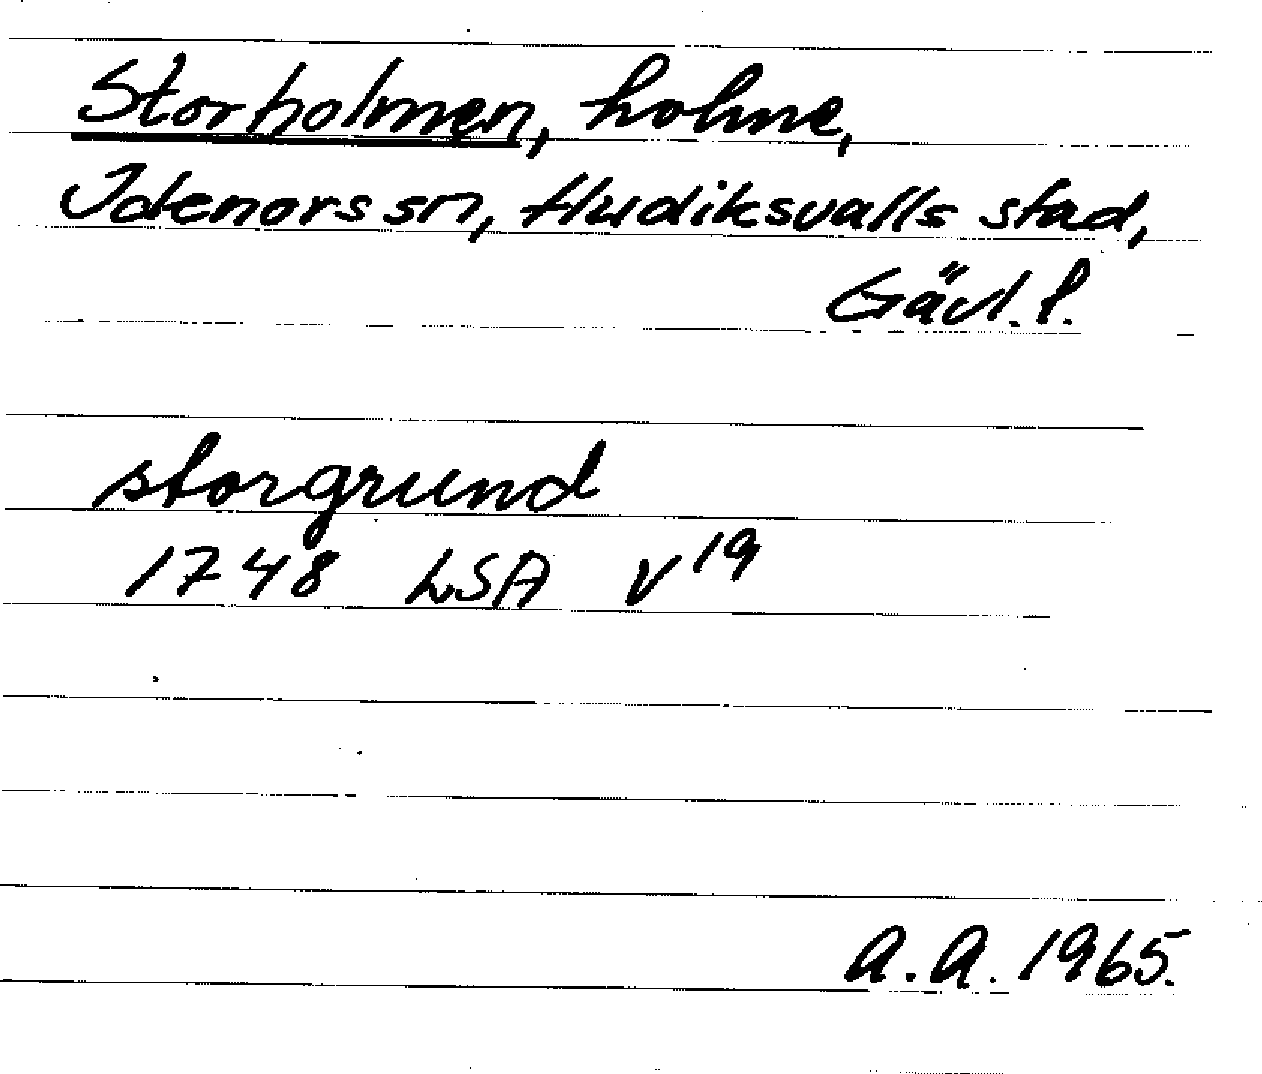 Storholmen, holme,
Idenors sn, Hudiksvalls stad,
Gävl. l.
storgrund
1748 LSA V19
A.A. 1965.